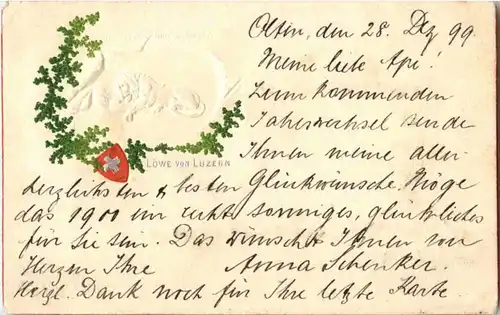 Olten, den 28. Dez 99.
Meine liebe Api!
Zum kommenden
Jahreswechsel sende
Ihnen meine aller-
LÖWE VON LUZERN
herzlichsten & besten Glückwünsche. Möge
das 1900 ein recht sonniges, glückliches
für Sie sein. Das wünscht Ihnen von
Herzen Ihre Anna Schenker.
Herzl. Dank noch für Ihre letzte Karte.